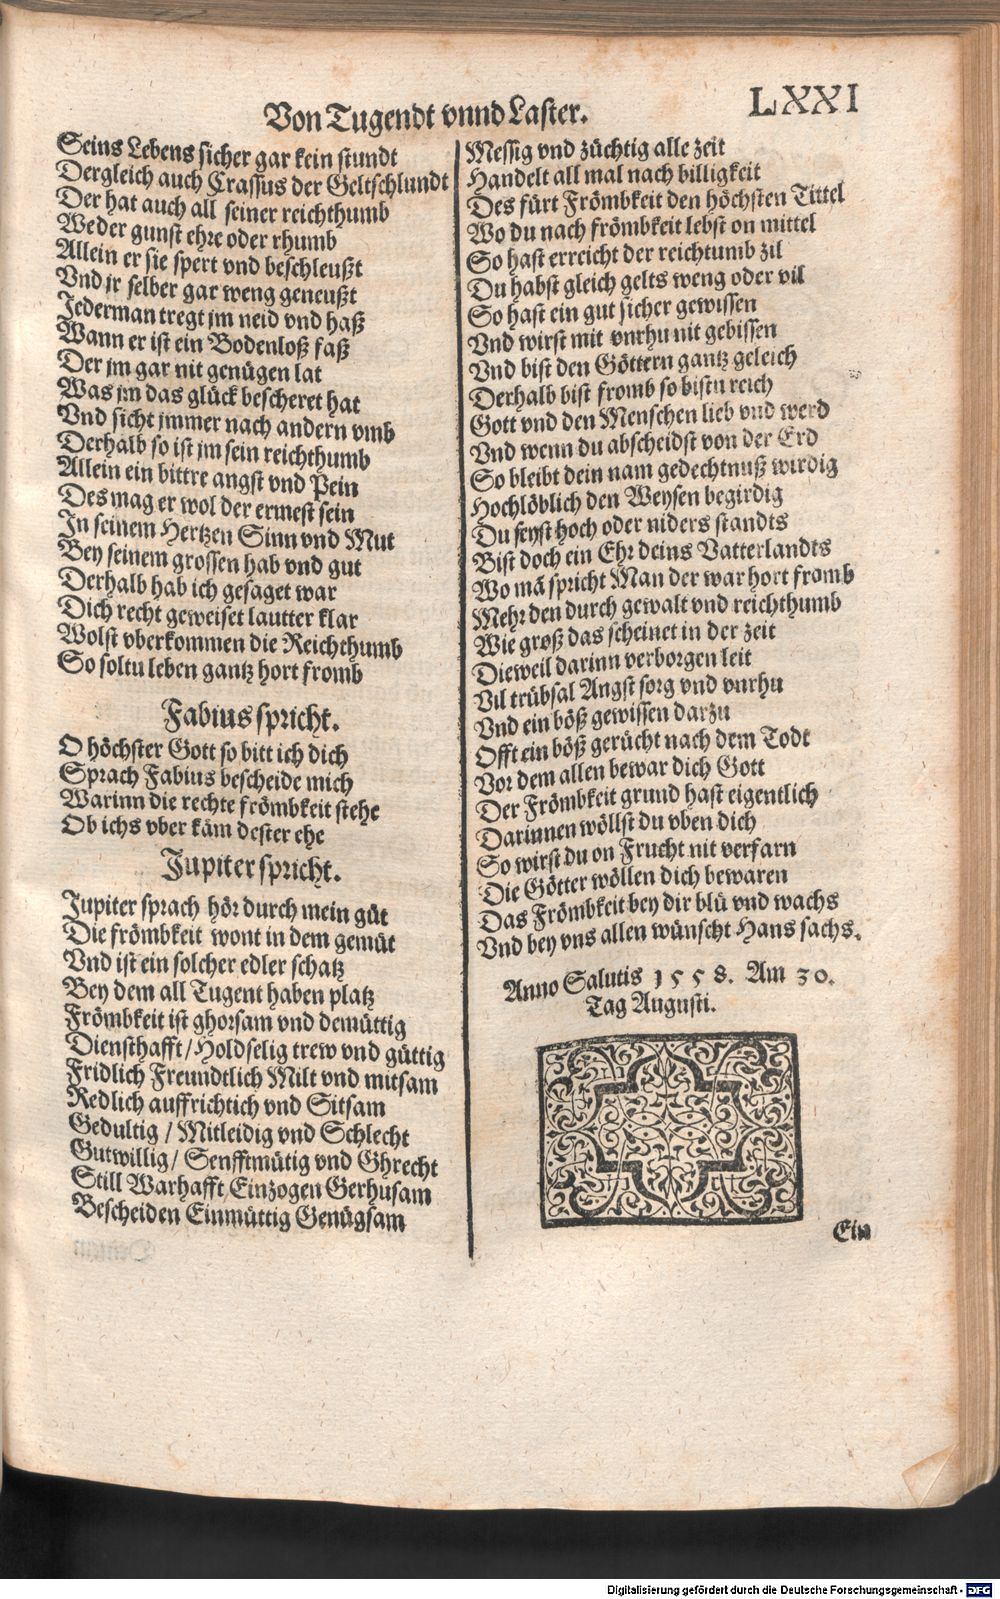 Von Tugendt vnnd Laster.
LXXI
Seins Lebens sicher gar kein stundt
Dergleich auch Crassus der Geltschlundt
Der hat auch all seiner reichthumb
Weder gunst ehre oder rhumb
Allein er sie spert vnd beschleußt
Vnd jr selber gar weng geneußt
Jederman tregt jm neid vnd haß
Wann er ist ein Bodenloß faß
Der jm gar nit genügen lat
Was jm das glück bescheret hat
Vnd sicht jmmer nach andern vmb
Derhalb so ist jm sein reichthumb
Allein ein bittre angst vnd Pein
Des mag er wol der ermest sein
In seinem Hertzen Sinn vnd Mut
Bey seinem grossen hab vnd gut
Derhalb hab ich gesaget war
Dich recht geweiset lautter klar
Wolst vberkommen die Reichthumb
So soltu leben gantz hort fromb
Fabius spricht.
O höchster Gott so bitt ich dich
Sprach Fabius bescheide mich
Warinn die rechte frömbkeit stehe
Ob ichs vber käm dester ehe
Jupiter spricht.
Jupiter sprach hör durch mein güt
Die frömbkeit wont in dem gemüt
Vnd ist ein solcher edler schatz
Bey dem all Tugent haben platz
Frömbkeit ist ghorsam vnd demüttig
Diensthafft / Holdselig trew vnd güttig
Fridlich Freundtlich Milt vnd mitsam
Redlich auffrichtich vnd Sitsam
Gedultig / Mitleidig vnd Schlecht
Gutwillig / Senfftmütig vnd Ghrecht
Still Warhafft Einzogen Gerhusam
Bescheiden Einmüttig Genügsam
Messig vnd züchtig alle zeit
Handelt all mal nach billigkeit
Des fürt Frömbkeit den höchsten Tittel
Wo du nach frömbkeit lebst on mittel
So hast erreicht der reichtumb zil
Du habst gleich gelts weng oder vil
So hast ein gut sicher gewissen
Vnd wirst mit vnrhu nit gebissen
Vnd bist den Göttern gantz geleich
Derhalb bist fromb so bistu reich
Gott vnd den Menschen lieb vnd werd
Vnd wenn du abscheidst von der Erd
So bleibt dein nam gedechtnuß wirdig
Hochlöblich den Weysen begirdig
Du seyst hoch oder niders standts
Bist doch ein Ehr deins Vatterlandts
Wo mā spricht Man der war hort fromb
Mehr den durch gewalt vnd reichthumb
Wie groß das scheinet in der zeit
Dieweil darinn verborgen leit
Vil trübsal Angst sorg vnd vnrhu
Vnd ein böß gewissen darzu
Offt ein böß gerücht nach dem Todt
Vor dem allen bewar dich Gott
Der Frömbkeit grund hast eigentlich
Darinnen wöllst du vben dich
So wirst du on Frucht nit verfarn
Die Götter wöllen dich bewaren
Das Frömbkeit bey dir blü vnd wachs
Vnd bey vns allen wünscht Hans sachs.
Anno Salutis 1558. Am 30.
Tag Augusti.
Ein
Digitalisierung gefördert durch die Deutsche Forschungsgemeinschaft - DFG